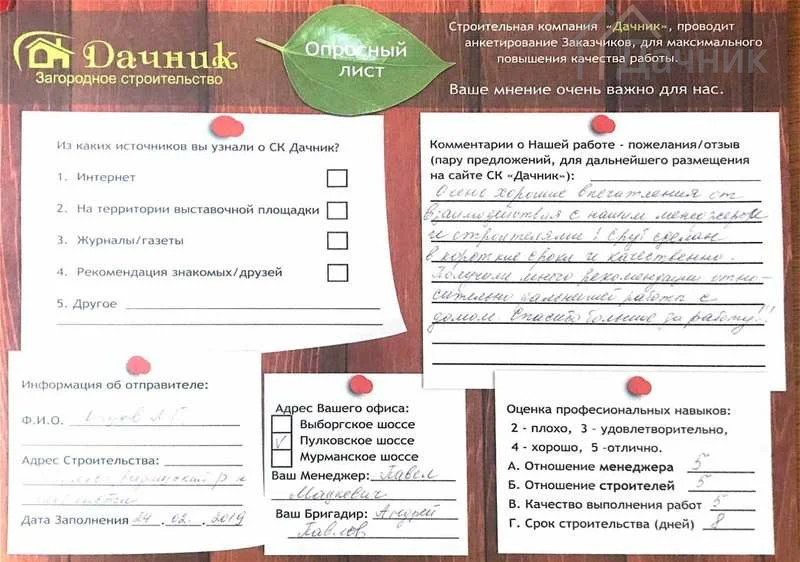 Дачник
Загородное строительство
Опросный
лист
Строительная компания «Дачник», проводит
анкетирование Заказчиков, для максимального
повышения качества работы.
Ваше мнение очень важно для нас.
Дачник
Из каких источников вы узнали о СК Дачник?
1. Интернет
2. На территории выставочной площадки
3. Журналы/газеты
4. Рекомендация знакомых/друзей
5. Другое
Комментарии о Нашей работе - пожелания/отзыв
(пару предложений, для дальнейшего размещения
на сайте СК «Дачник»):
Очень хорошие впечатления от
взаимодействия с нашим менеджером
и строителями! Сруб сделан
в короткие сроки и качественно.
Получили много рекомендации относ-
сительно дальнейшей работы с
домом. Спасибо большое за работу!!!
Информация об отправителе:
Ф.И.О.
Адрес Строительства:
р-н
Дата Заполнения 24 . 02 . 2019
Адрес Вашего офиса:
Выборгское шоссе
✓ Пулковское шоссе
Мурманское шоссе
Ваш Менеджер: Павел
Мацкевич
Ваш Бригадир: Андрей
Павлов
Оценка професиональных навыков:
2 - плохо, 3 - удовлетворительно,
4 - хорошо, 5 -отлично.
А. Отношение менеджера 5
Б. Отношение строителей 5
В. Качество выполнения работ 5
Г. Срок строительства (дней) 8